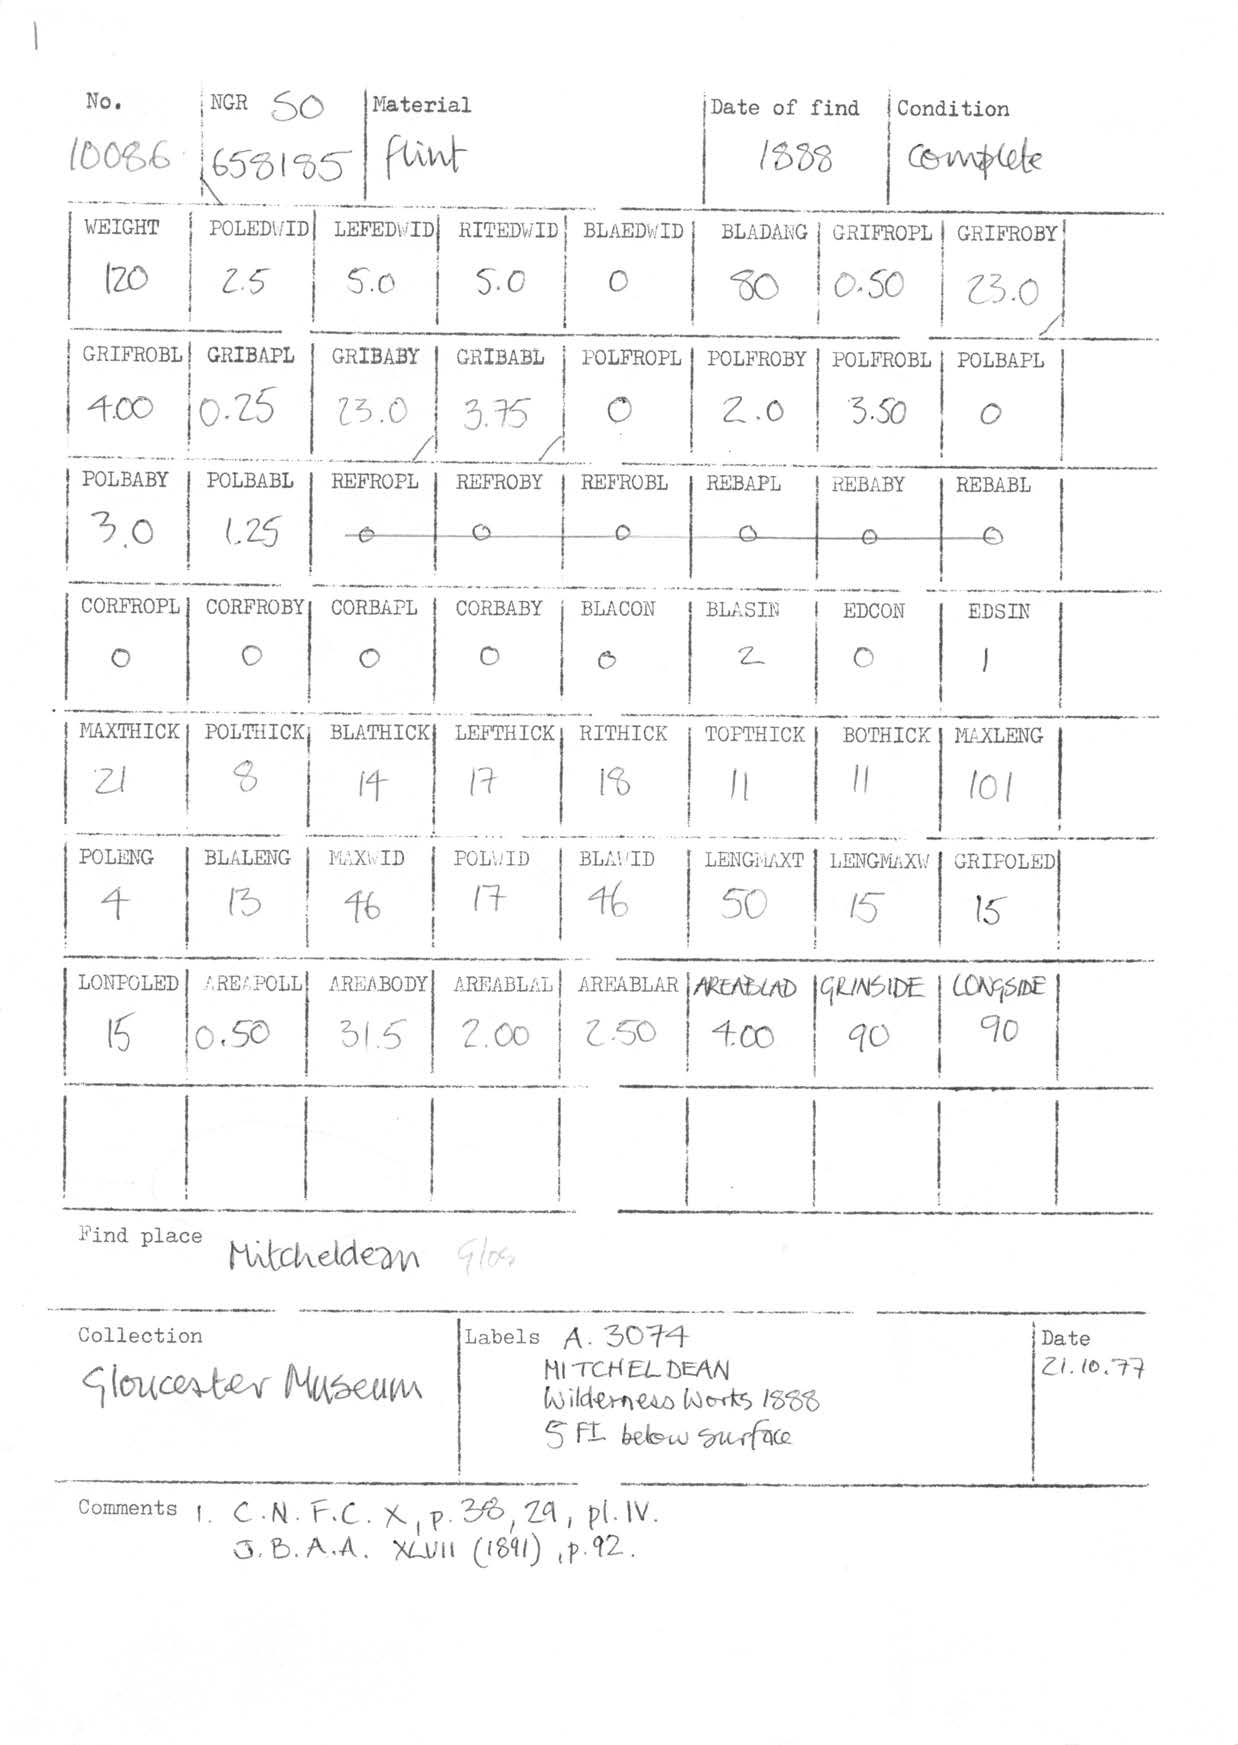 1
No. NGR SO Material Date of find Condition
10086 658185 flint 1888 complete
WEIGHT POLEDWID LEFEDWID RITEDWID BLAEDWID BLADANG GRIFROPL GRIFROBY
120 2.5 5.0 5.0 0 80 0.50 23.0
GRIFROBL GRIBAPL GRIBABY GRIBABL POLFROPL POLFROBY POLFROBL POLBAPL
4.00 0.25 23.0 3.75 0 2.0 3.50 0
POLBABY POLBABL REFROPL REFROBY REFROBL REBAPL REBABY REBABL
3.0 1.25 0 0 0 0 0 0
CORFROPL CORFROBY CORBAPL CORBABY BLACON BLASIN EDCON EDSIN
0 0 0 0 0 2 0 1
MAXTHICK POLTHICK BLATHICK LEFTHICK RITHICK TOPTHICK BOTHICK MAXLENG
21 8 14 17 18 11 11 101
POLENG BLALENG MAXWID POLWID BLAWID LENGMAXT LENGMAXW GRIPOLED
4 13 46 17 46 50 15 15
LONPOLED AREAPOLL AREABODY AREABLAL AREABLAR AREABLAD GRINSIDE LONGSIDE
15 0.50 31.5 2.00 2.50 4.00 90 90
Find place Mitcheldean Glos
Collection Labels A. 3074 Date
Gloucester Museum MITCHELDEAN 21.10.77
Wilderness Works 1888
5 FT below surface
Comments 1. C.N.F.C. X, p. 38, 29, pl. IV.
J.B.A.A. XLVII (1891), p.92.